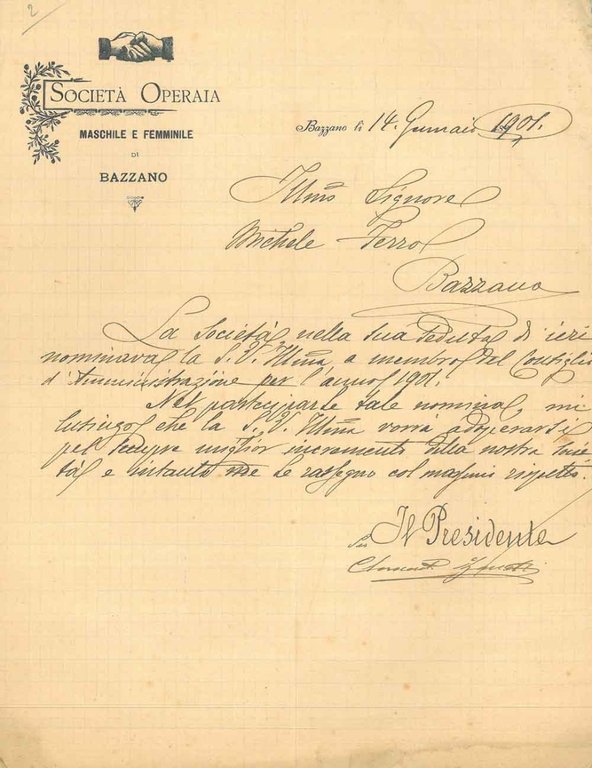 2
SOCIETÀ OPERAIA
MASCHILE E FEMMINILE
DI
BAZZANO
Bazzano li 14. Gennaio 1901.
Illmo Signore
Michele Ferro
Bazzano
La Società, nella sua seduta di ieri
nominava la S. V. Illma a membro del Consiglio
d'Amministrazione per l'anno 1901.
Nel partecipare tale nomina, mi
lusingo che la S. V. Illma vorrà adoperarsi
pel sempre miglior incremento della nostra Socie
tà e intanto me Le rassegno col massimo rispetto.
Il Presidente